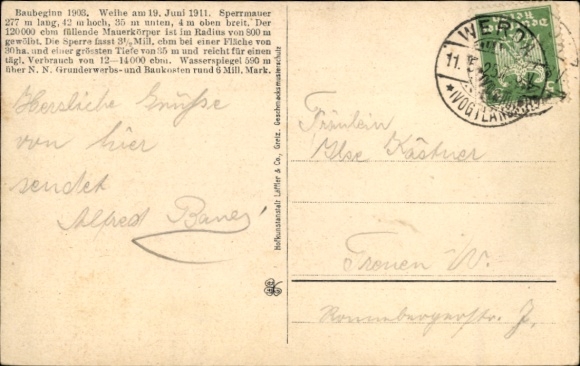 Baubeginn 1903. Weihe am 19. Juni 1911. Sperrmauer
277 m lang, 42 m hoch, 35 m unten, 4 m oben breit. Der
120000 cbm füllende Mauerkörper ist im Radius von 800 m
gewölbt. Die Sperre fasst 3½ Mill. cbm bei einer Fläche von
30 ha. und einer grössten Tiefe von 35 m und reicht für einen
tägl. Verbrauch von 12—14000 cbm. Wasserspiegel 590 m
über N. N. Grunderwerbs- und Baukosten rund 6 Mill. Mark.
Herzliche Grüße
von hier
sendet
Alfred
Hofkunstanstalt Löffler & Co., Greiz. Geschmacksmusterschutz
WERD
11.
*(VOGTLAND)
Deutsches Reich
5
Fräulein
Ilse Kästner
W.
Ronneburgerstr.